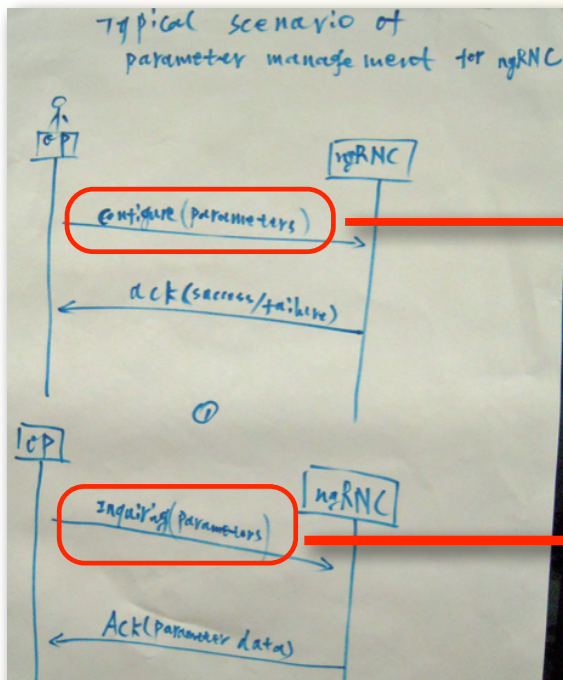 Typical scenario of
parameter management for ngRNC
OP
ngRNC
configure (parameters)
ack (success/failure)
①
OP
ngRNC
Inquiring (parameters)
Ack (parameter data)